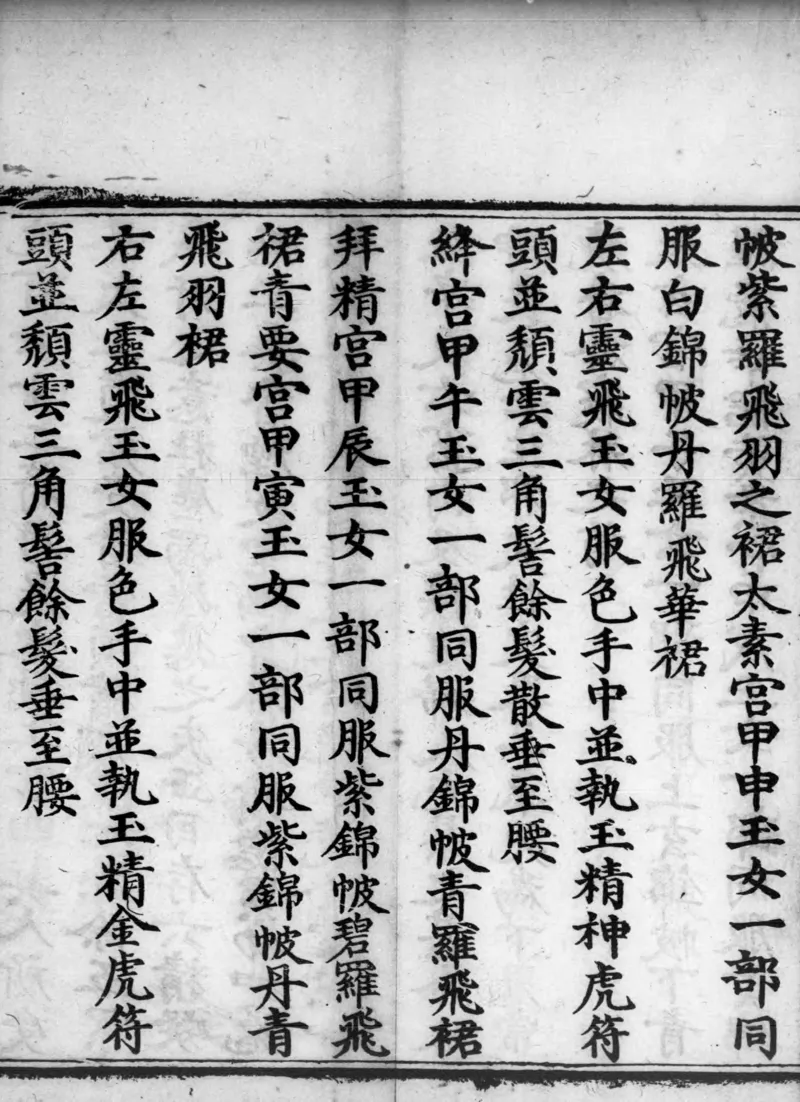 帔紫羅飛羽之裙太素宮甲申玉女一部同
服白錦帔丹羅飛華裙
左右靈飛玉女服色手中並執玉精神虎符
頭並頹雲三角髻餘髮散垂至腰
絳宮甲午玉女一部同服丹錦帔青羅飛裙
拜精宮甲辰玉女一部同服紫錦帔碧羅飛
裙青要宮甲寅玉女一部同服紫錦帔丹青
飛羽裙
右左靈飛玉女服色手中並執玉精金虎符
頭並頹雲三角髻餘髮垂至腰